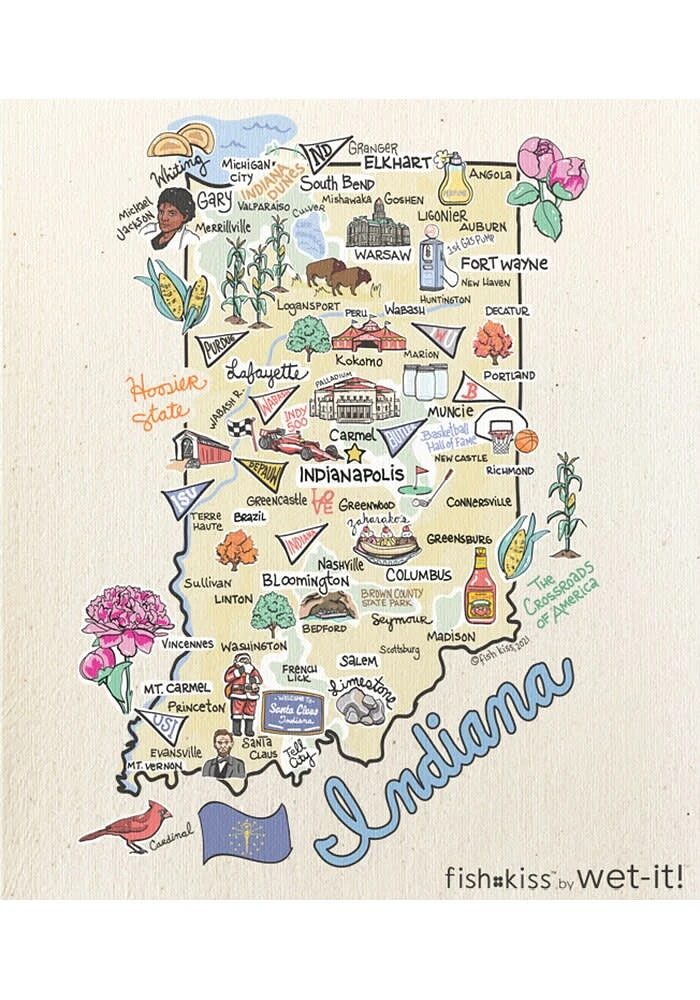 ND
GRANGER
ELKHART
Whiting
MICHIGAN CITY
INDIANA DUNES
SOUTH BEND
ANGOLA
MICHAEL JACKSON
GARY
VALPARAISO
CULVER
MISHAWAKA
GOSHEN
MERRILLVILLE
LIGONIER
AUBURN
1st GAS PUMP
WARSAW
FORT WAYNE
NEW HAVEN
HUNTINGTON
LOGANSPORT
PERU
WABASH
DECATUR
PURDUE
KOKOMO
MARION
IWU
PORTLAND
Lafayette
Hoosier State
WABASH R.
WABASH
PALLADIUM
B
MUNCIE
INDY 500
CARMEL
BUTLER
Basketball Hall of Fame
NEW CASTLE
RICHMOND
DEPAUW
INDIANAPOLIS
ISU
GREENCASTLE
LOVE
GREENWOOD
CONNERSVILLE
TERRE HAUTE
BRAZIL
zaharako's
INDIANA
GREENSBURG
NASHVILLE
COLUMBUS
SULLIVAN
BLOOMINGTON
BROWN COUNTY STATE PARK
THE CROSSROADS OF AMERICA
LINTON
BEDFORD
Seymour
MADISON
VINCENNES
WASHINGTON
Scottsburg
©fish kiss, 2021
FRENCH LICK
SALEM
MT. CARMEL
limestone
PRINCETON
WELCOME TO
Santa Claus
Indiana
USI
EVANSVILLE
SANTA CLAUS
Tell City
MT. VERNON
Indiana
Cardinal
fish kiss™ by wet-it!